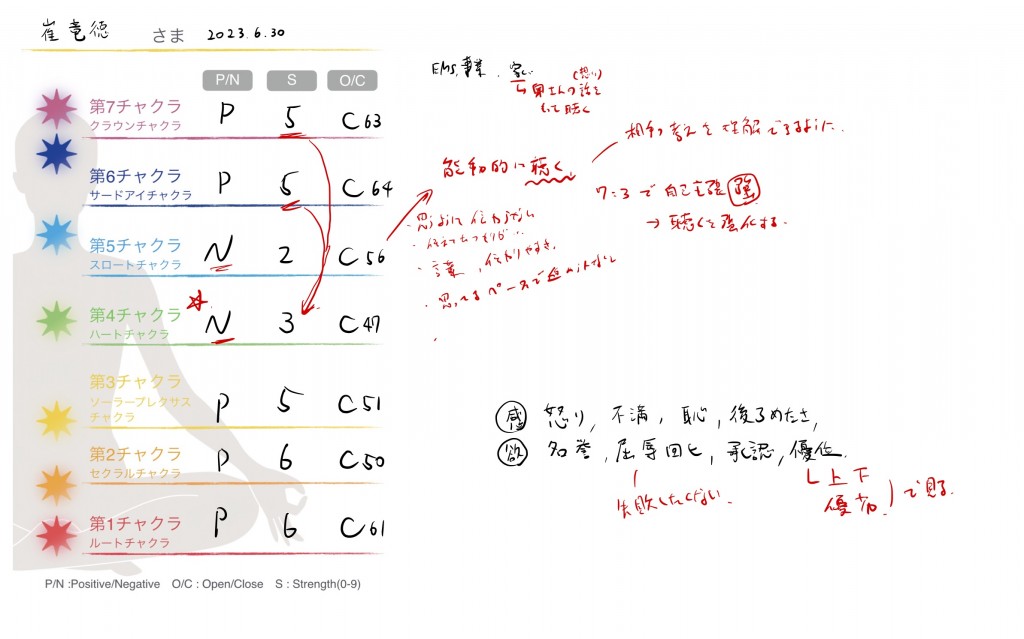 崔竜徳 さま 2023.6.30
P/N S O/C
第7チャクラ
クラウンチャクラ
P 5 C63
第6チャクラ
サードアイチャクラ
P 5 C64
第5チャクラ
スロートチャクラ
N 2 C56
第4チャクラ
ハートチャクラ
N 3 C47
第3チャクラ
ソーラープレクサス
チャクラ
P 5 C51
第2チャクラ
セクラルチャクラ
P 6 C50
第1チャクラ
ルートチャクラ
P 6 C61
P/N :Positive/Negative O/C : Open/Close S : Strength(0-9)
EMS事業
(想い)
奥さんの話を
もって聴く
能動的に聴く
相手の考えを理解できるように.
7:3で自己主張 強
→ 聴くを強化する.
・思うように伝わらない
・言葉, 伝わりやすさ.
・思ってるペースで進められない
感 怒り, 不満, 恥, 後ろめたさ,
欲 名誉, 屈辱回ヒ, 承認, 優位.
失敗したくない.
上下
優劣
で見る.